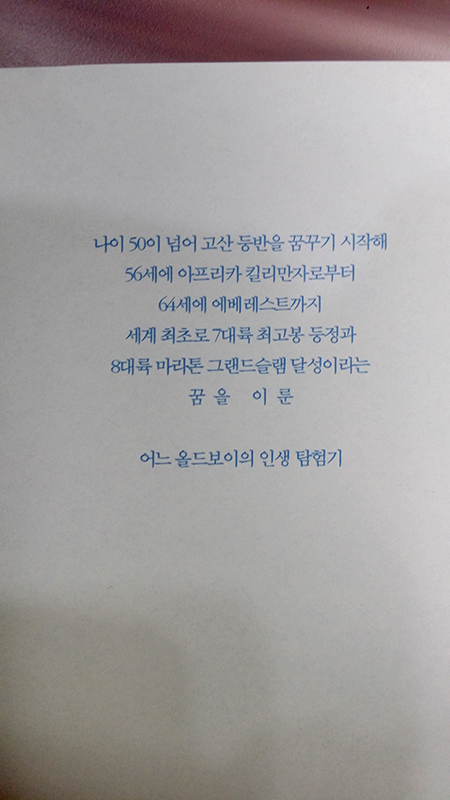 나이 50이 넘어 고산 등반을 꿈꾸기 시작해
56세에 아프리카 킬리만자로부터
64세에 에베레스트까지
세계 최초로 7대륙 최고봉 등정과
8대륙 마라톤 그랜드슬램 달성이라는
꿈을 이룬
어느 올드보이의 인생 탐험기